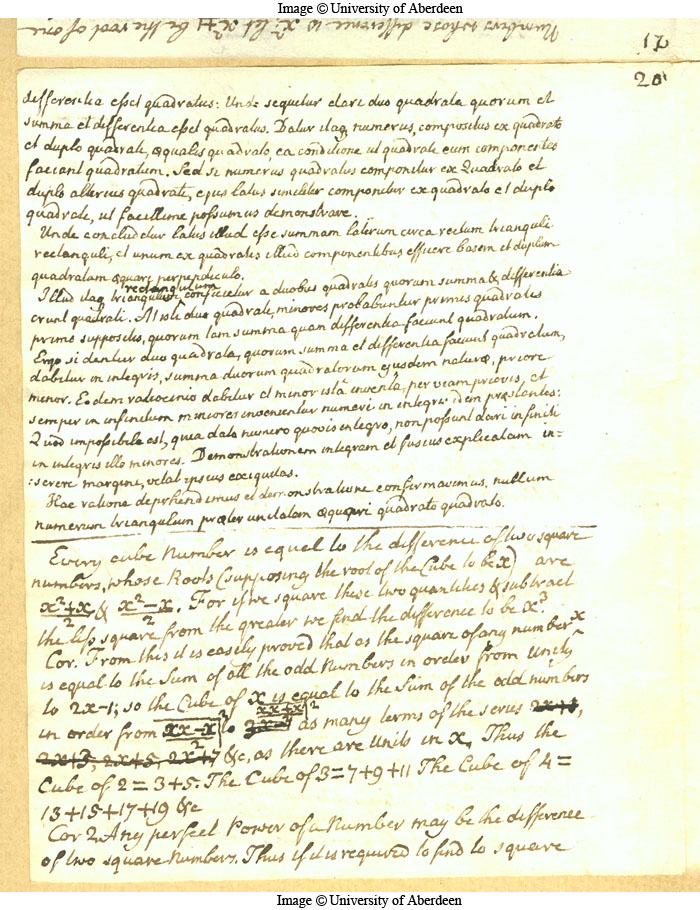 Image © University of Aberdeen
Numbers whose difference is x²; let x²+1 be the root of one
17
20
differentia esset quadratus: Unde sequitur dari duo quadrata quorum et
summa et differentia esset quadratus. Datur itaq numerus, compositus ex quadrato
et duplo quadrati, æqualis quadrato, ea conditione ut quadrati eum componentes
faciant quadratum. Sed si numerus quadratus componitur ex Quadrato et
duplo alterius quadrati, ejus latus similiter componitur ex quadrato et duplo
quadrati, ut facillime possumus demonstrare.
Unde concludetur latus illud esse summam laterum circa rectum trianguli
rectanguli, et unum ex quadratis illud componentibus efficere basem et duplum
quadratum æquari perpendiculo.
Illud itaq triangulum rectangulum conficietur a duobus quadratis quorum summa & differentia
erunt quadrati. At isti duo quadrati minores probabuntur primis quadratis
primo suppositis, quorum tam summa quam differentia faciunt quadratum.
Ergo si dentur duo quadrata, quorum summa et differentia faciunt quadratum,
dabitur in integris, summa duorum quadratorum ejusdem naturæ, priore
minor. Eodem ratiocinio dabitur et minor istâ inventa per viam prioris, et
semper in infinitum minores invenientur numeri in integris idem præstantes:
Quod impossibile est, quia dato numero quovis integro, non possunt dari infiniti
in integris illo minores. Demonstrationem integram et fusius explicatam in=
:serere margini, vetat ipsius exiguitas.
Hac ratione deprehendimus et demonstratione confirmavimus, nullum
numerum triangulum præter unitatem æquari quadrato quadrato.
Every cube Number is equal to the difference of two square
numbers, whose Roots (supposing the root of the Cube to be x) are
x²+x/2 & x²−x/2. For if we square these two quantities & subtract
the less square from the greater we find the difference to be x³.
Cor. From this it is easily proved that as the square of any number x
is equal to the Sum of all the odd Numbers in order from Unity
to 2x-1; so the Cube of x is equal to the Sum of the odd numbers
in order from xx-x/2|² to xx+x/2|² as many terms of the series 2x+1,
2x+3, 2x+5, 2x+7 &c, as there are Units in x. Thus the
Cube of 2 = 3+5. The Cube of 3=7+9+11 The Cube of 4=
13+15+17+19 &c
Cor 2. Any perfect Power of a Number may be the difference
of two square Numbers. Thus if it is required to find to square
Image © University of Aberdeen